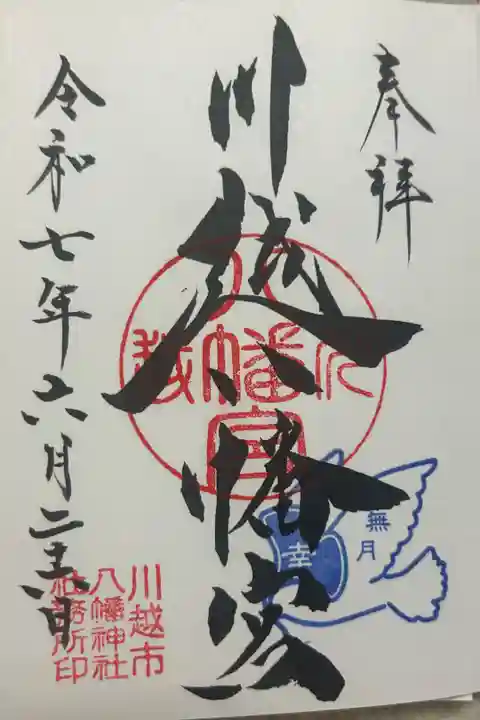 奉拝
川越八幡宮
川越
八幡
宮
無月
幸
令和七年六月二十六日
川越市
八幡神社
社務所印